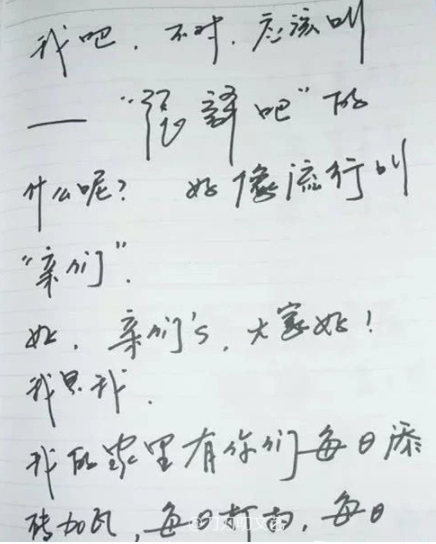 我吧，不对，应该叫
—— “张译吧”的
什么呢？ 好像流行叫
“亲们”.
好，亲们's，大家好！
我是我.
我的家里有你们每日添
砖加瓦，每日打扫，每日